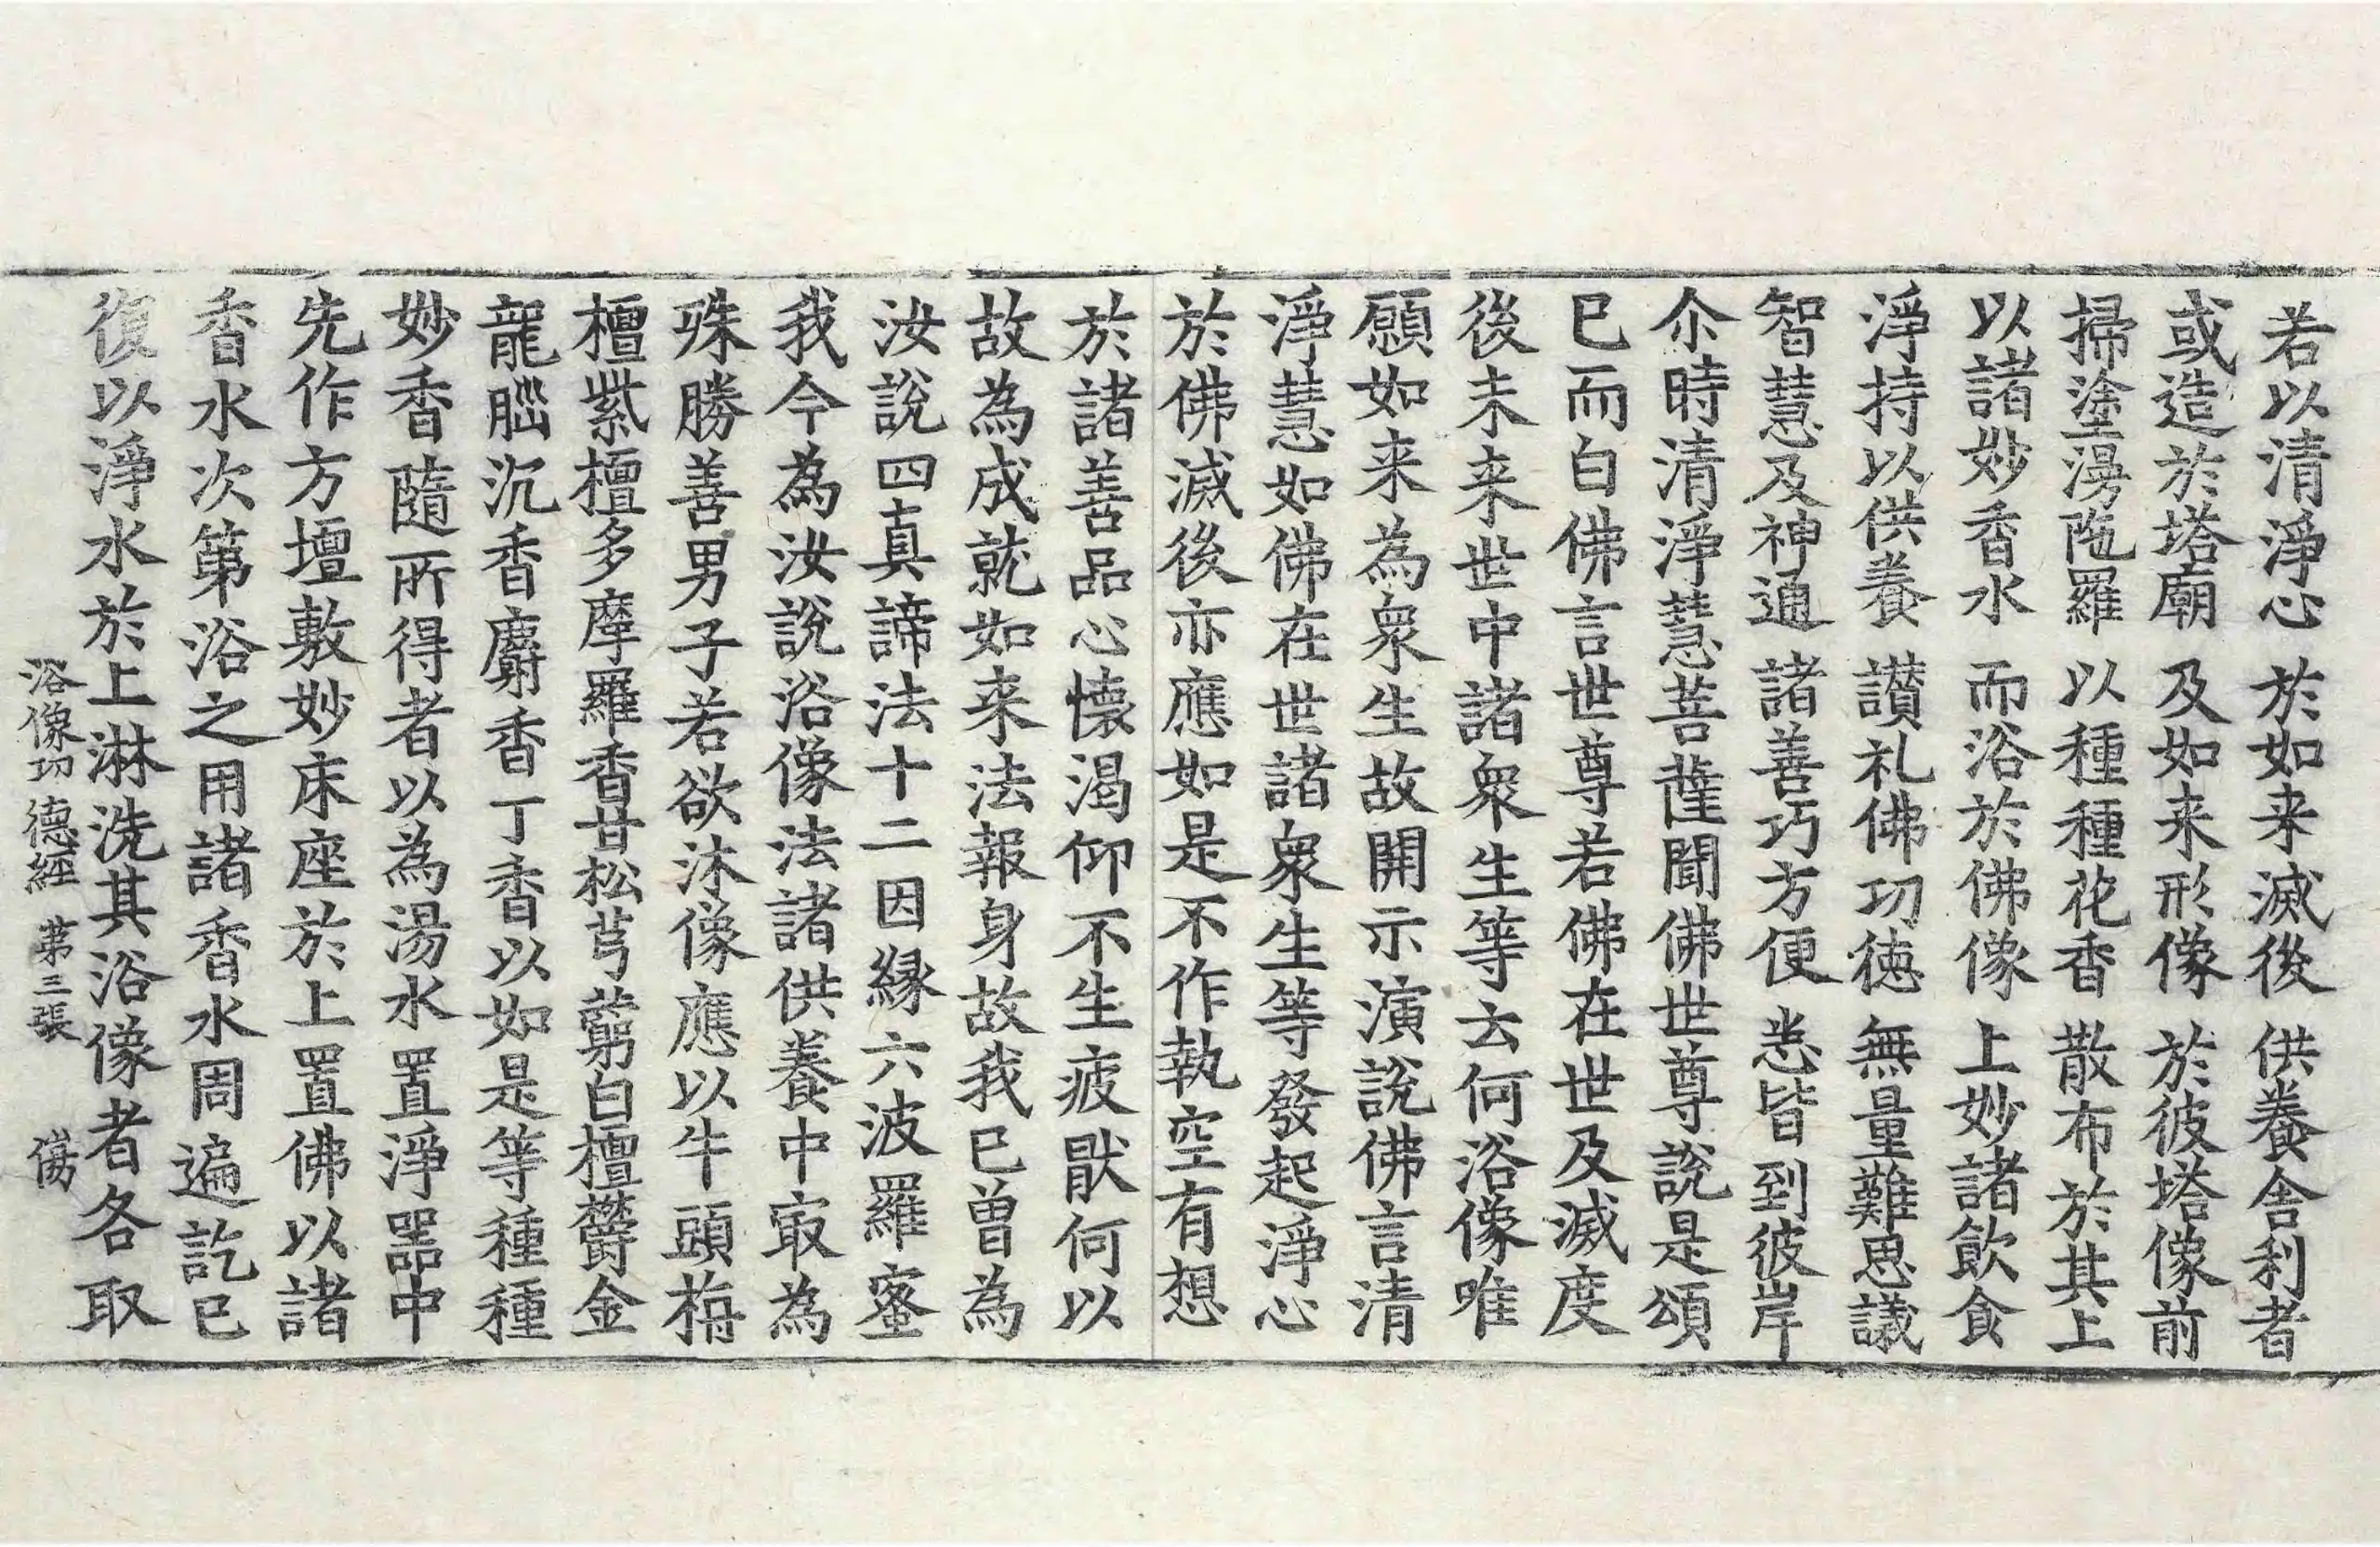 若以清淨心　於如来滅後　供養舎利者
或造於塔廟　及如来形像　於彼塔像前
掃塗漫陁羅　以種種花香　散布於其上
以諸妙香水　而浴於佛像　上妙諸飲食
淨持以供養　讃礼佛功徳　無量難思議
智慧及神通　諸善巧方便　悉皆到彼岸
尒時清淨慧菩薩聞佛世尊說是頌
已而白佛言世尊若佛在世及滅度
後未来世中諸衆生等去何浴像唯
願如来為衆生故開示演說佛言清
淨慧如佛在世諸衆生等發起淨心
於佛滅後亦應如是不作執空有想
於諸善品心懐渇仰不生疲猒何以
故為成就如来法報身故我已曾為
汝說四真諦法十二因縁六波羅蜜
我今為汝說浴像法諸供養中㝡為
殊勝善男子若欲沐像應以牛頭栴
檀紫檀多摩羅香甘松芎藭白檀欝金
龍腦沉香麝香丁香以如是等種種
妙香隨所得者以為湯水置淨器中
先作方壇敷妙床座於上置佛以諸
香水次第浴之用諸香水周遍訖已
復以淨水於上淋洗其浴像者各取
浴像功德經　第三張　傷